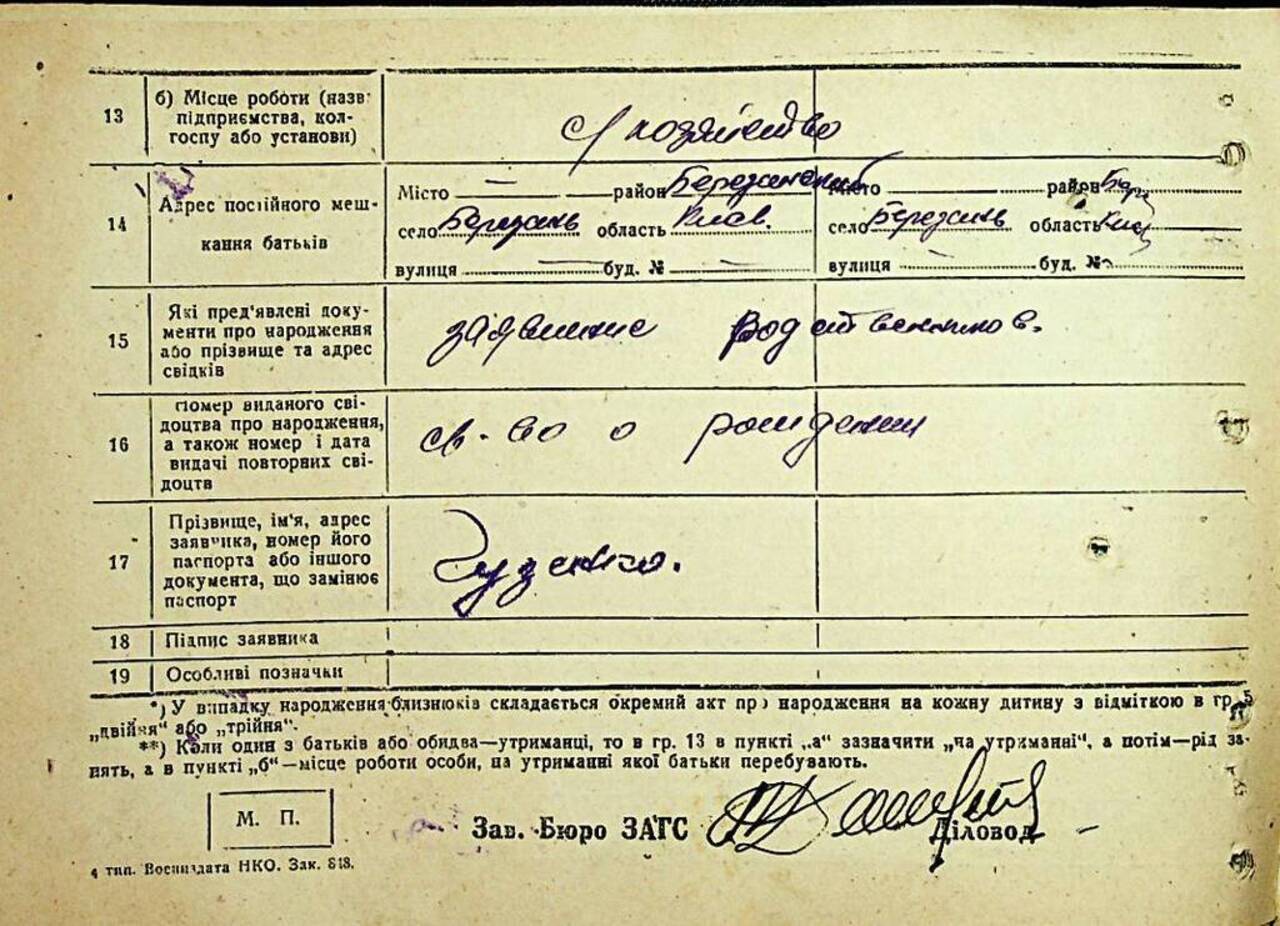 13
б) Місце роботи (назв
підприємства, кол-
госпу або установи)
с/хозяйство
14
Адрес постійного меш-
кання батьків
Місто — район Березанский Місто район Бере
село Березань область Киев. село Березань область Киев
вулиця — буд. № — вулиця — буд. №
15
Які пред'явлені доку-
менти про народження
або прізвище та адрес
свідків
заявление родственников.
16
Номер виданого сві-
доцтва про народження,
а також номер і дата
видачі повторних сві-
доцтв
св-во о рождении
17
Прізвище, ім'я, адрес
заявника, номер його
паспорта або іншого
документа, що замінює
паспорт
Гузенко.
18 Підпис заявника
19 Особливі позначки
*) У випадку народження близнюків складається окремий акт про народження на кожну дитину з відміткою в гр. 5
„двійня“ або „трійня“.
**) Коли один з батьків або обидва—утриманці, то в гр. 13 в пункті „а“ зазначити „на утриманні“, а потім—рід за-
нять, а в пункті „б“—місце роботи особи, на утриманні якої батьки перебувають.
М. П.
Зав. Бюро ЗАГС
Діловод
4 тип. Воениздата НКО. Зак. 848.